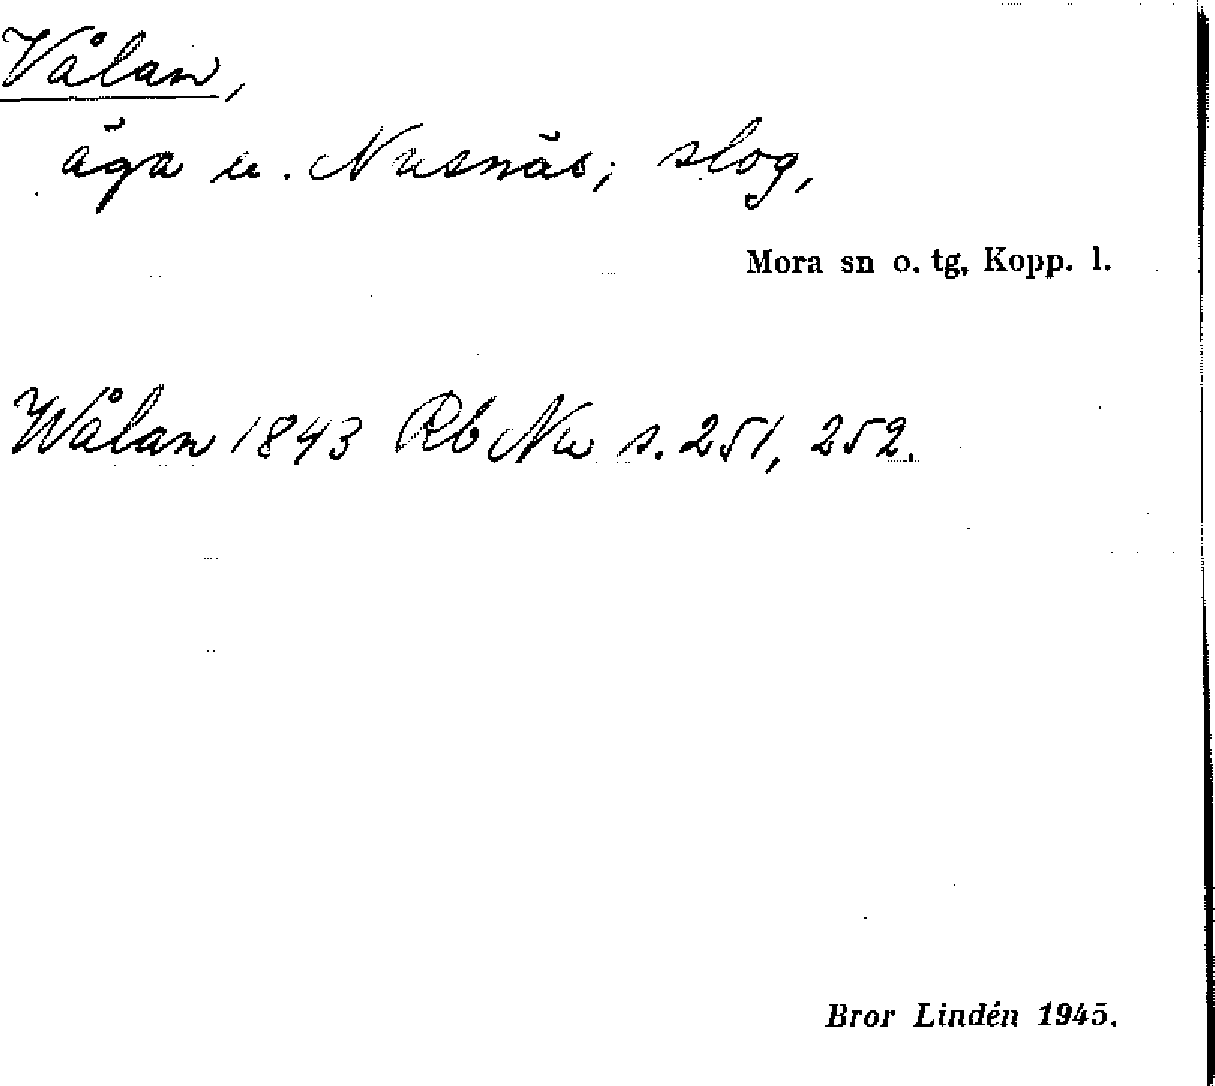 Vålan,
äga u. Nusnäs; slog,
Mora sn o. tg, Kopp. l.
Wålan 1843 Rb Nu s. 251, 252.
Bror Lindén 1945.